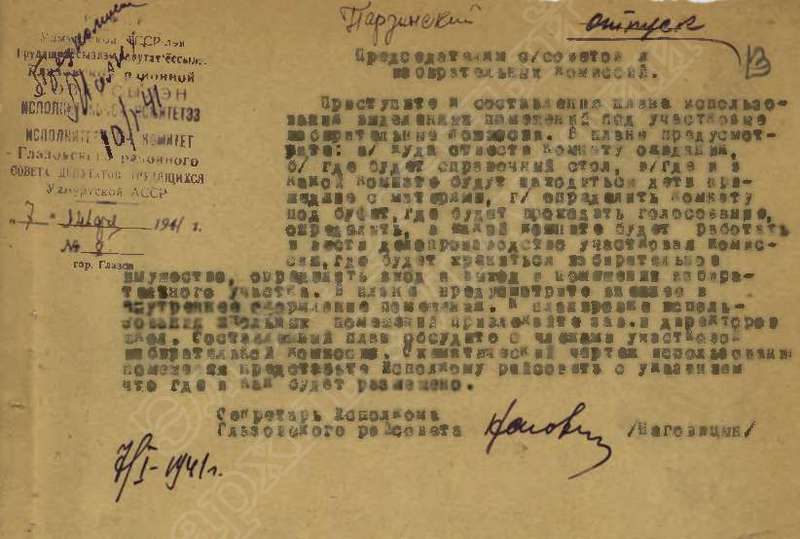 Парзинский
отпуск
13
Удмуртской АССР-лэн
Трудящоссылэн депутатъёссылэн
районной
ИСПОЛНИТЕЛЬНОЙ КОМИТЕТЭЗ
10/I 41
ИСПОЛНИТЕЛЬНЫЙ КОМИТЕТ
Глазовского районного
СОВЕТА ДЕПУТАТОВ ТРУДЯЩИХСЯ
Удмуртской АССР
„7“ января 1941 г.
№ 8
гор. Глазов
Председателям с/советов и
избирательных комиссий.
Приступите к составлению плана использо-
вания выделенных помещений под участковые
избирательные комиссии. В плане предусмот-
рите: а/ куда отвести комнату ожидания,
б/ где будет справочный стол, в/где и в
какой комнате будут находиться дети при-
шедшие с матерями, г/ определить комнату
под буфет, где будет проходить голосование,
определить, в какой комнате будет работать
и вести делопроизводство участковая комис-
сия, где будет храниться избирательное
имущество, определить вход и выход в помещении избира-
тельного участка. В плане предусмотрите внешнее и
внутреннее оформление помещения. К планировке исполь-
зования школьных помещений привлекайте зав. и директоров
школ. Составленный план обсудите с членами участково-
избирательной комиссии. Схематический чертеж использования
помещения представьте Исполкому райсовета с указанием
что где и как будет размещено.
Секретарь Исполкома
Глазовского райсовета /Наговицын/
7/I-1941г.